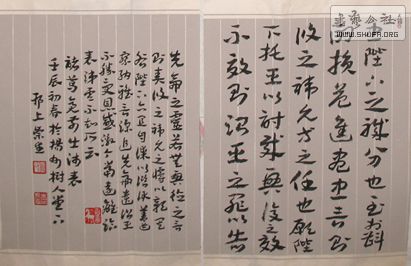 陛下之職分也至於斟
酌損益進盡忠言則
攸之禕允之任也願陛
下托臣以討賊興復之效
不效則治臣之罪以告
先帝之靈若無興德之言
則責攸之禕允之慢以彰其
咎陛下亦宜自謀以諮諏善道
察納雅言深追先帝遺詔臣
不勝受恩感激今當遠離臨
表涕零不知所云
諸葛亮前出師表
壬辰初春於揚州樹人堂下
邗上
WWW.SHUFA.ORG